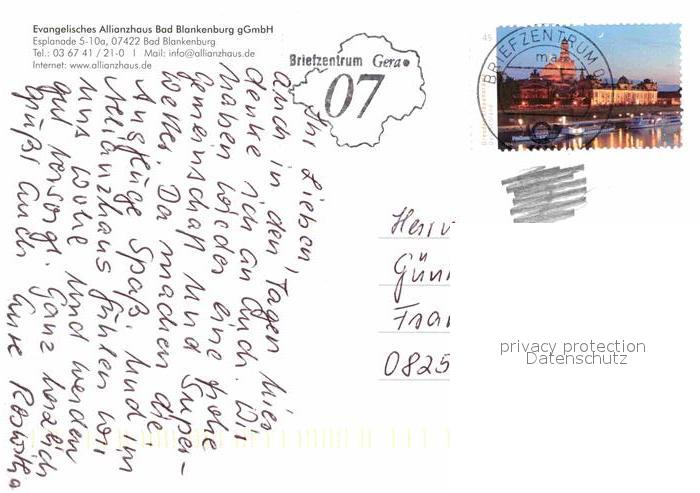 Evangelisches Allianzhaus Bad Blankenburg gGmbH
Esplanade 5-10a, 07422 Bad Blankenburg
Tel.: 03 67 41 / 21-0 I Mail: info@allianzhaus.de
Internet: www.allianzhaus.de
Briefzentrum Gera
07
45
BRIEFZENTRUM 0
Ihr Lieben!
Auch in den Tagen hier
denke ich an Euch. Wir
haben wieder eine frohe
Gemeinschaft und Super-
wetter. Da machen die
Ausflüge Spaß. Und im
Allianzhaus fühlen wir
uns wohl und werden
gut versorgt. Ganz herzlich
grüßt Euch Eure Roswitha
Herrn
Günt
Fran
0825
privacy protection
Datenschutz